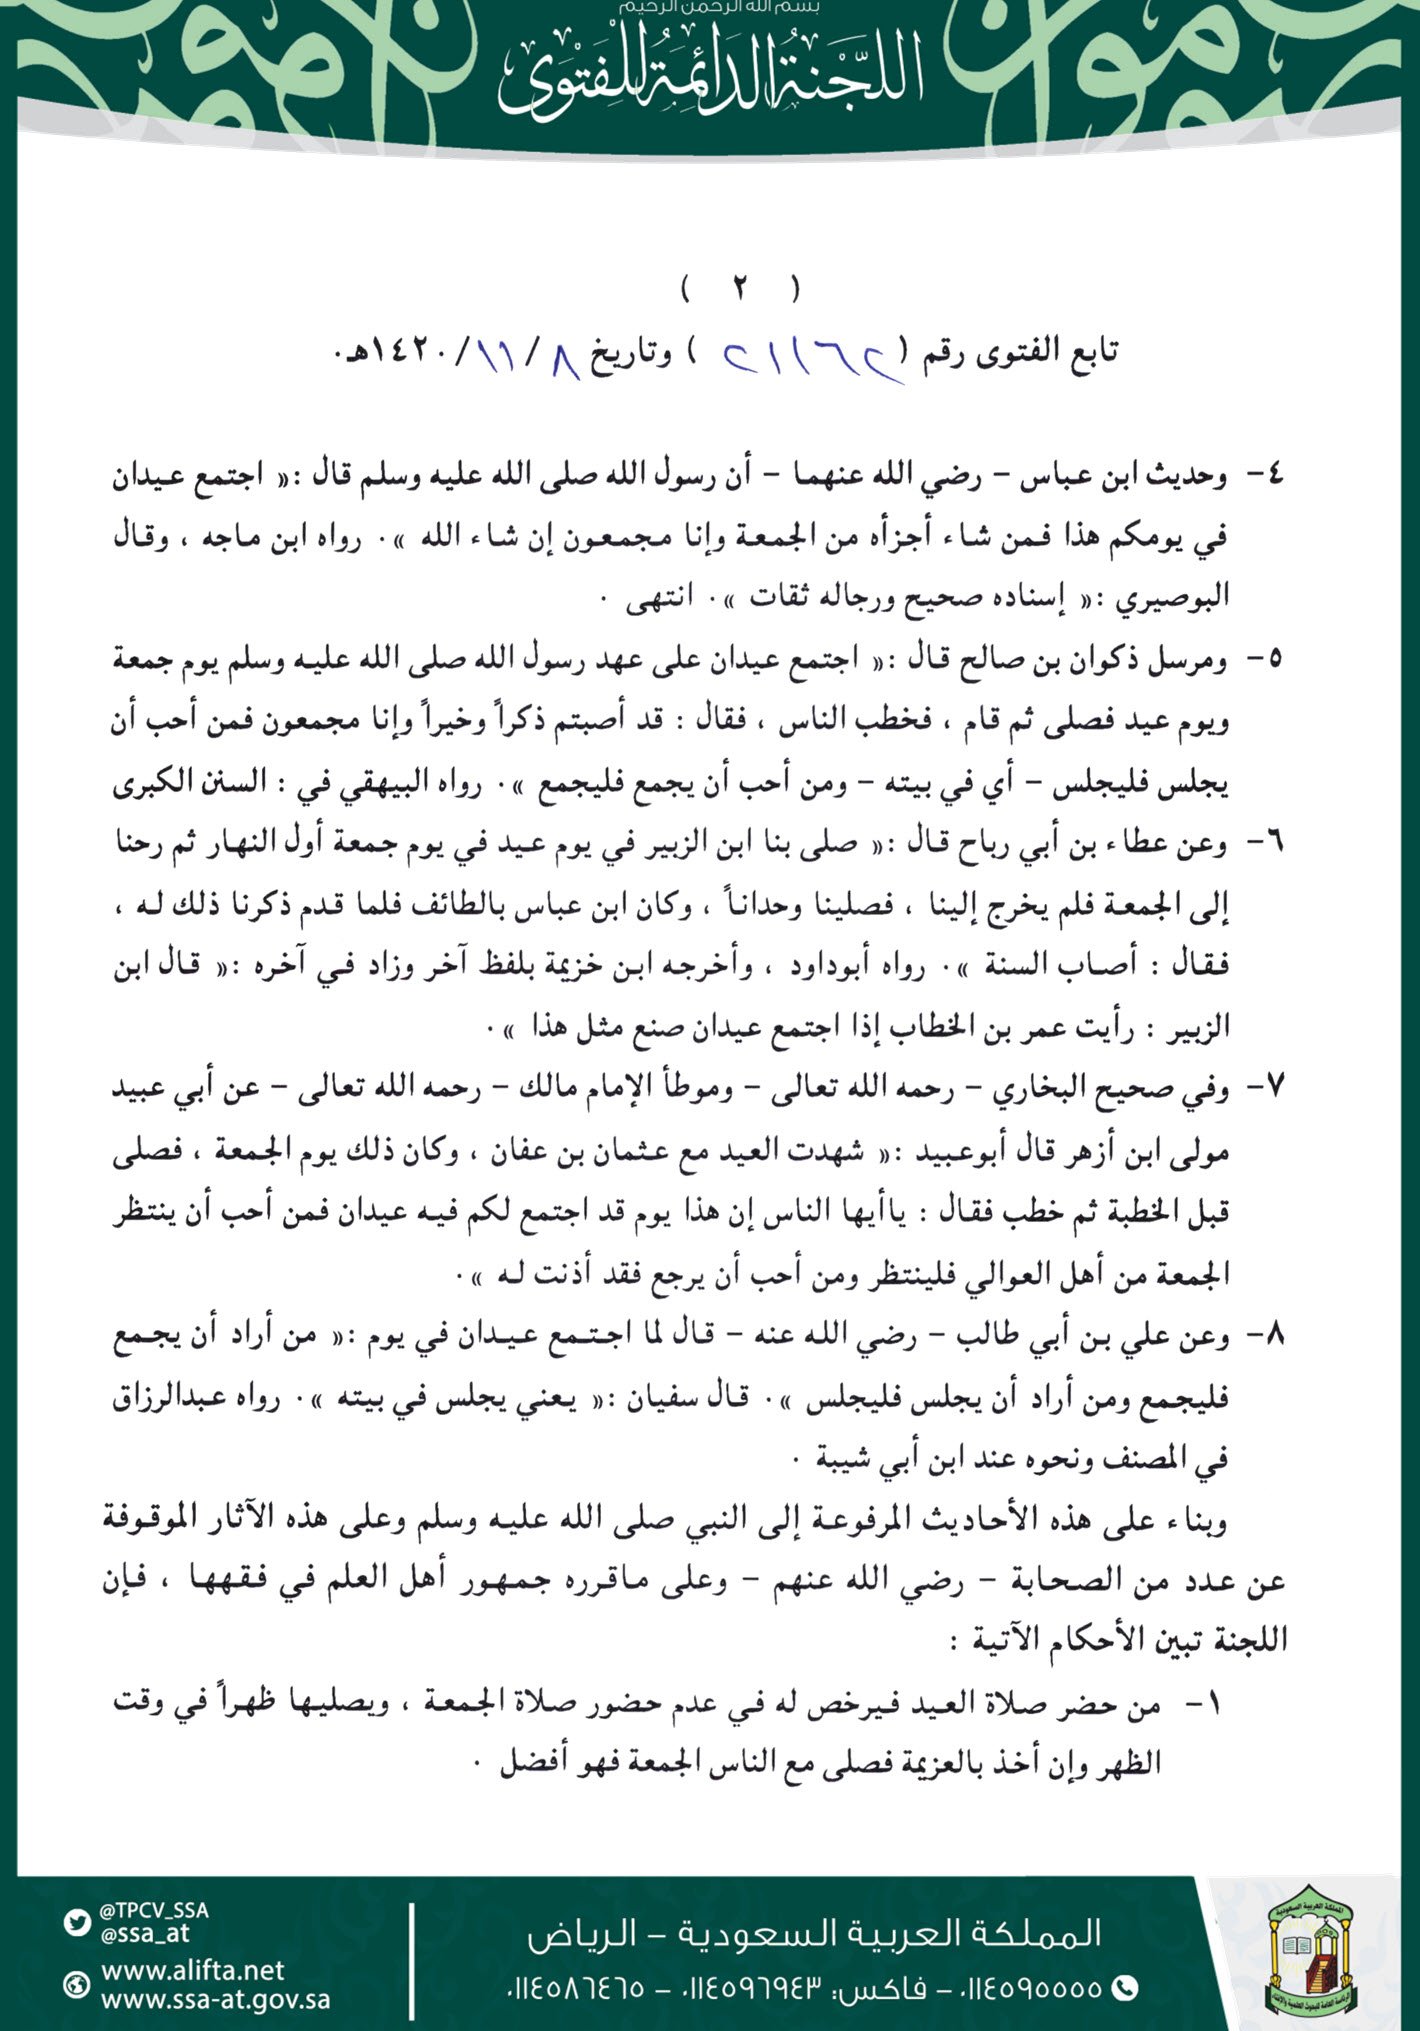 بسم الله الرحمن الرحيم
اللَّجْنَةُ الدَّائِمَةُ لِلْفَتْوَى
( ٢ )
تابع الفتوى رقم ( ٢١١٦٢ ) وتاريخ ٨ / ١١ / ١٤٢٠هـ ٠
٤- وحديث ابن عباس - رضي الله عنهما - أن رسول الله صلى الله عليه وسلم قال :« اجتمع عيدان
في يومكم هذا فمن شاء أجزأه من الجمعة وإنا مجمعون إن شاء الله »٠ رواه ابن ماجه ، وقال
البوصيري :« إسناده صحيح ورجاله ثقات »٠ انتهى ٠
٥- ومرسل ذكوان بن صالح قال :« اجتمع عيدان على عهد رسول الله صلى الله عليه وسلم يوم جمعة
ويوم عيد فصلى ثم قام ، فخطب الناس ، فقال : قد أصبتم ذكراً وخيراً وإنا مجمعون فمن أحب أن
يجلس فليجلس - أي في بيته - ومن أحب أن يجمع فليجمع »٠ رواه البيهقي في : السنن الكبرى
٦- وعن عطاء بن أبي رباح قال :« صلى بنا ابن الزبير في يوم عيد في يوم جمعة أول النهار ثم رحنا
إلى الجمعة فلم يخرج إلينا ، فصلينا وحداناً ، وكان ابن عباس بالطائف فلما قدم ذكرنا ذلك له ،
فقال : أصاب السنة »٠ رواه أبوداود ، وأخرجه ابن خزيمة بلفظ آخر وزاد في آخره :« قال ابن
الزبير : رأيت عمر بن الخطاب إذا اجتمع عيدان صنع مثل هذا »٠
٧- وفي صحيح البخاري - رحمه الله تعالى - وموطأ الإمام مالك - رحمه الله تعالى - عن أبي عبيد
مولى ابن أزهر قال أبوعبيد :« شهدت العيد مع عثمان بن عفان ، وكان ذلك يوم الجمعة ، فصلى
قبل الخطبة ثم خطب فقال : ياأيها الناس إن هذا يوم قد اجتمع لكم فيه عيدان فمن أحب أن ينتظر
الجمعة من أهل العوالي فلينتظر ومن أحب أن يرجع فقد أذنت له »٠
٨- وعن علي بن أبي طالب - رضي الله عنه - قال لما اجتمع عيدان في يوم :« من أراد أن يجمع
فليجمع ومن أراد أن يجلس فليجلس »٠ قال سفيان :« يعني يجلس في بيته »٠ رواه عبدالرزاق
في المصنف ونحوه عند ابن أبي شيبة ٠
وبناء على هذه الأحاديث المرفوعة إلى النبي صلى الله عليه وسلم وعلى هذه الآثار الموقوفة
عن عدد من الصحابة - رضي الله عنهم - وعلى ماقرره جمهور أهل العلم في فقهها ، فإن
اللجنة تبين الأحكام الآتية :
١- من حضر صلاة العيد فيرخص له في عدم حضور صلاة الجمعة ، ويصليها ظهراً في وقت
الظهر وإن أخذ بالعزيمة فصلى مع الناس الجمعة فهو أفضل ٠
المملكة العربية السعودية
الرئاسة العامة للبحوث العلمية والإفتاء
المملكة العربية السعودية – الرياض
٠١١٤٥٩٥٥٥٥ – فاكس: ٠١١٤٥٩٦٩٤٣ – ٠١١٤٥٨٦٤٦٥
@TPCV_SSA
@ssa_at
www.alifta.net
www.ssa-at.gov.sa